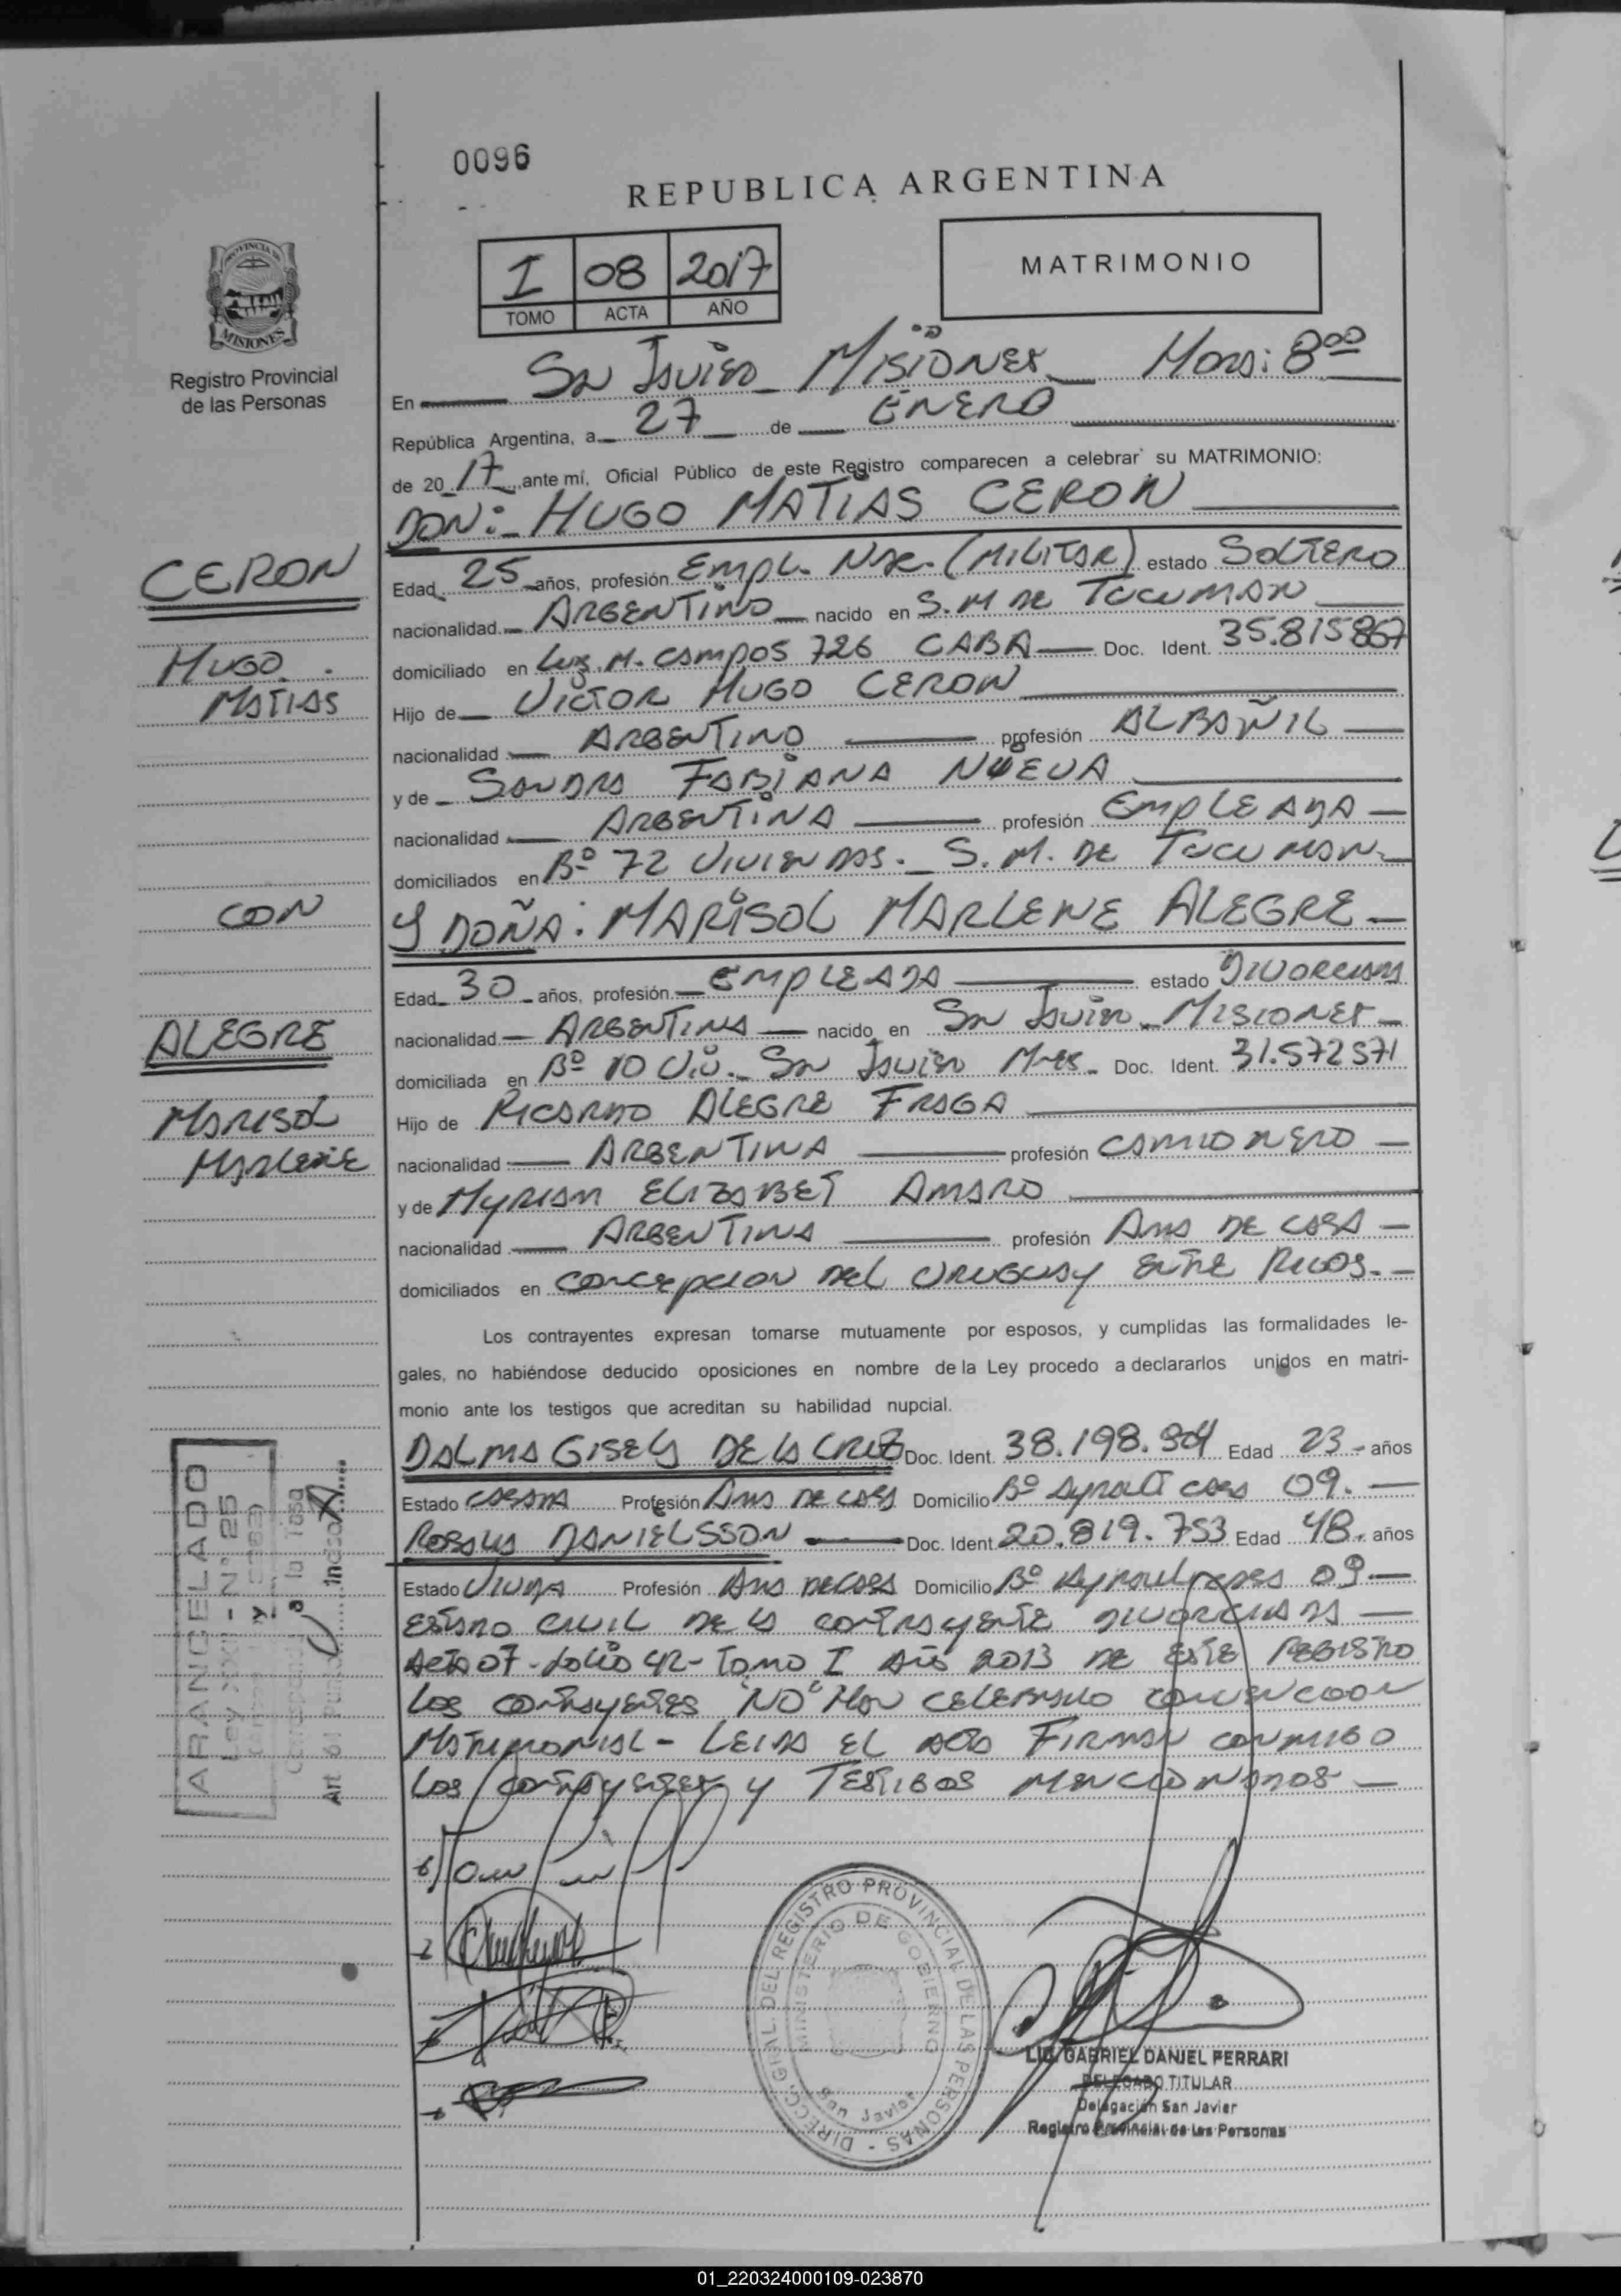 0096
REPUBLICA ARGENTINA
I 08 2017
TOMO ACTA AÑO
MATRIMONIO
PROVINCIA DE
MISIONES
Registro Provincial
de las Personas
En San Javier Misiones Hora: 8 00
República Argentina, a 27 de ENERO
de 20 17 ante mí, Oficial Público de este Registro comparecen a celebrar su MATRIMONIO:
DON: HUGO MATIAS CERON
CERON
HUGO
MATIAS
Edad 25 años, profesión Empl. Nac. (MILITAR) estado SOLTERO
nacionalidad ARGENTINO nacido en S.M DE TUCUMAN
domiciliado en Luis M. CAMPOS 726 CABA Doc. Ident. 35.815867
Hijo de VICTOR HUGO CERON
nacionalidad ARGENTINO profesión ALBAÑIL
y de SANDRA FABIANA NUEVA
nacionalidad ARGENTINA profesión EMPLEADA
domiciliados en Bº 72 VIVIENDAS. S. M. DE TUCUMAN
CON
Y DOÑA: MARISOL MARLENE ALEGRE
Edad 30 años, profesión EMPLEADA estado DIVORCIADA
ALEGRE
MARISOL
MARLENE
nacionalidad ARGENTINA nacido en San Javier MISIONES
domiciliada en Bº 10 Viv. San Javier Mnes. Doc. Ident. 31.572571
Hijo de RICARDO ALEGRE FRAGA
nacionalidad ARGENTINA profesión CAMIONERO
y de MYRIAM ELIZABET AMARO
nacionalidad ARGENTINA profesión AMA DE CASA
domiciliados en CONCEPCION DEL URUGUAY ENTRE RIOS.
Los contrayentes expresan tomarse mutuamente por esposos, y cumplidas las formalidades le-
gales, no habiéndose deducido oposiciones en nombre de la Ley procedo a declararlos unidos en matri-
monio ante los testigos que acreditan su habilidad nupcial.
DALMA GISELY DE LA CRUZ Doc. Ident. 38.198.904 Edad 23 años
Estado CASADA Profesión AMA DE CASA Domicilio Bº casa 09.
ROSALIA DANIELSSON Doc. Ident. 20.819.753 Edad 48 años
Estado VIUDA Profesión AMA DE CASA Domicilio Bº 09
ESTADO CIVIL DE LA CONTRAYENTE DIVORCIADA
Acta 07 - Folio 42 - Tomo I Año 2013 DE ESTE REGISTRO
LOS CONTRAYENTES "NO" HAN CELEBRADO CONVENCION
MATRIMONIAL - LEIDA EL ACTA FIRMAN CONMIGO
LOS CONTRAYENTES Y TESTIGOS MENCIONADOS
ARANCELADO
Ley XXII - Nº 25
Corresponde a la Tasa
Art. 6º Punto inciso A
DIRECC. GRAL. DEL REGISTRO PROVINCIAL DE LAS PERSONAS
MINISTERIO DE GOBIERNO
San Javier
LIC. GABRIEL DANIEL FERRARI
DELEGADO TITULAR
Delegación San Javier
Registro Provincial de las Personas
01_220324000109-023870